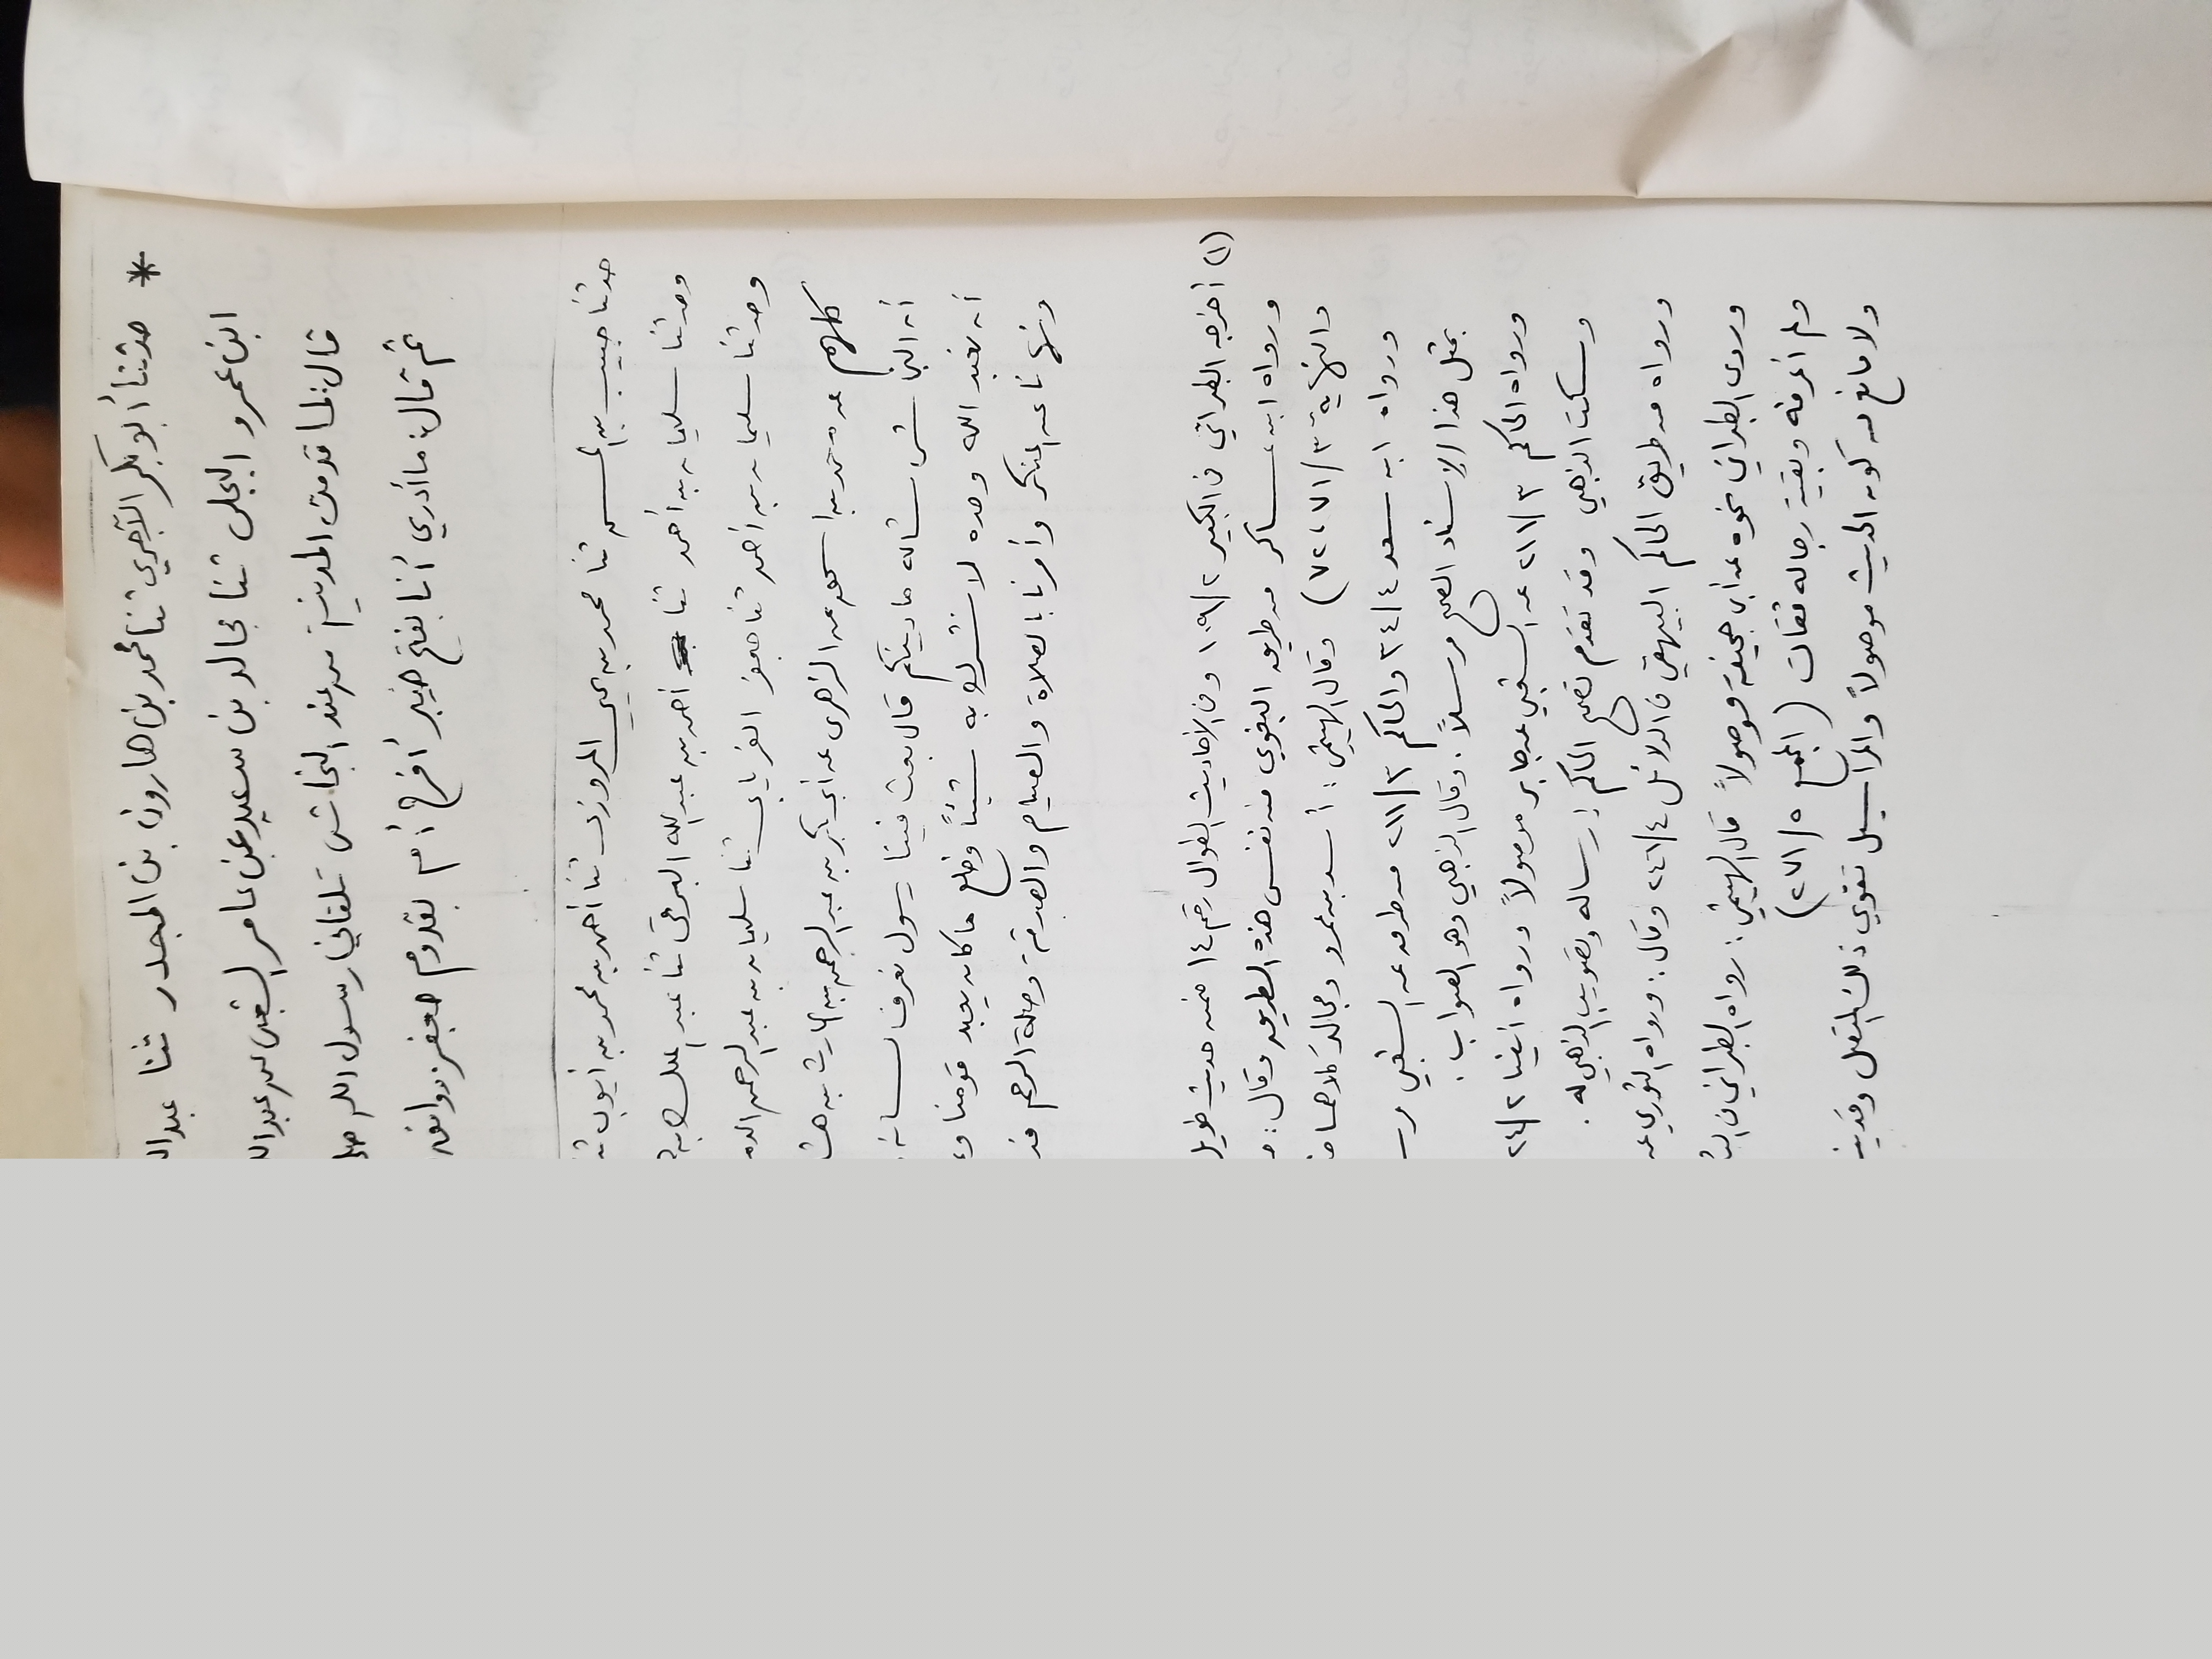 * حدثنا أبو بكر الآجري ثنا محمد بن هارون بن المجدر ثنا عبد
ابن عمرو البجلي ثنا مجالد بن سعيد عن عامر الشعبي عن عبد
قال: لما قدمت المدينة من عند النجاشي تلقاني رسول الله
ثم قال: ما أدري أنا بفتح خيبر أفرح أم بقدوم جعفر
حدثنا حبيب بن الحسن ثنا محمد بن يحيى المروزي ثنا أحمد بن محمد بن أيوب
وحدثنا سليمان بن أحمد ثنا أحمد بن عبد الله البرقي ثنا عبد الملك
وحدثنا سليمان بن أحمد ثنا جعفر الفريابي ثنا سليمان بن عبد الرحمن
كلهم عن محمد بن إسحق عن الزهري عن أبي بكر بن عبد الرحمن بن الحارث بن
أن النجاشي سأله ما دينكم قال بعث فينا رسول نعرف لسانه
أن نعبد الله وحده لا نشرك به شيئاً ونخلع ما كان يعبد قومنا
ونهانا عن المنكر وأمرنا بالصلاة والصيام والصدقة وصلة الرحم
(١) أخرجه الطبراني في الكبير ٢/١٠٩ وفي الأحاديث الطوال رقم ١٤ ضمن حديث طويل
ورواه ابن عساكر من طريق البغوي من نفس هذه الطريق وقال:
والنهاية ٣/٧١، ٧٢) وقال الهيثمي: أسد بن عمرو ومجالد كلاهما
ورواه ابن سعد ٤/٣٤ والحاكم ٣/٢١١ من طرق عن الشعبي
بمثل هذا الإسناد الصحيح مرسلاً. وقال الذهبي وهو الصواب.
ورواه الحاكم ٣/٢١١ عن الشعبي عن جابر موصولاً ورواه أيضا ٢/
وسكت الذهبي وقد تقدم تصحيح الحاكم إرساله وتصويب الذهبي له.
ورواه من طريق الحاكم البيهقي في الدلائل ٤/٢٤٦ وقال: ورواه الثوري عن
وروى الطبراني نحوه عن أبي جحيفة موصولاً قال الهيثمي: رواه الطبراني في
ولم أعرفه وبقية رجاله ثقات (المجمع ٥/٢٧١)
ولا مانع من كون الحديث موصولاً والمراسيل تقوي ذلك المتصل